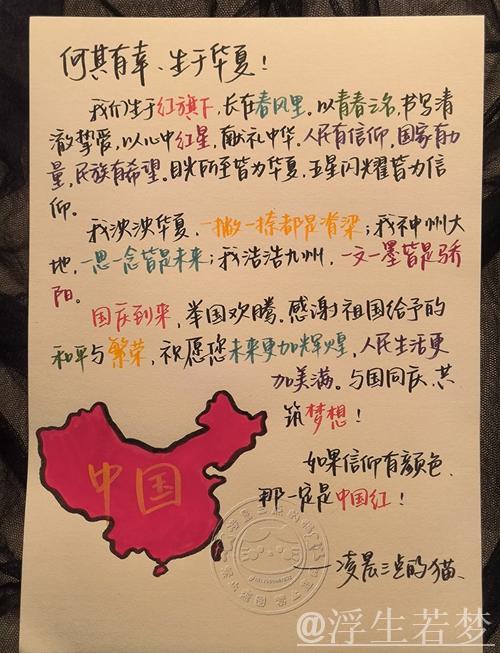 何其有幸、生于华夏！
我们生于红旗下，长在春风里。以青春之名，书写清
澈挚爱，以心中红星，献礼中华。人民有信仰，国家有力
量，民族有希望。目光所至皆为华夏，五星闪耀皆为信
仰。
我泱泱华夏，一撇一捺都是脊梁；我神州大
地，一思一念皆是未来；我浩浩九州，一文一墨皆是骄
阳。
国庆到来，举国欢腾。感谢祖国给予的
和平与繁荣，祝愿您未来更加辉煌，人民生活更
加美满。与国同庆、共
筑梦想！
如果信仰有颜色、
那一定是中国红！
中国
——凌晨三点的猫、
@浮生若梦